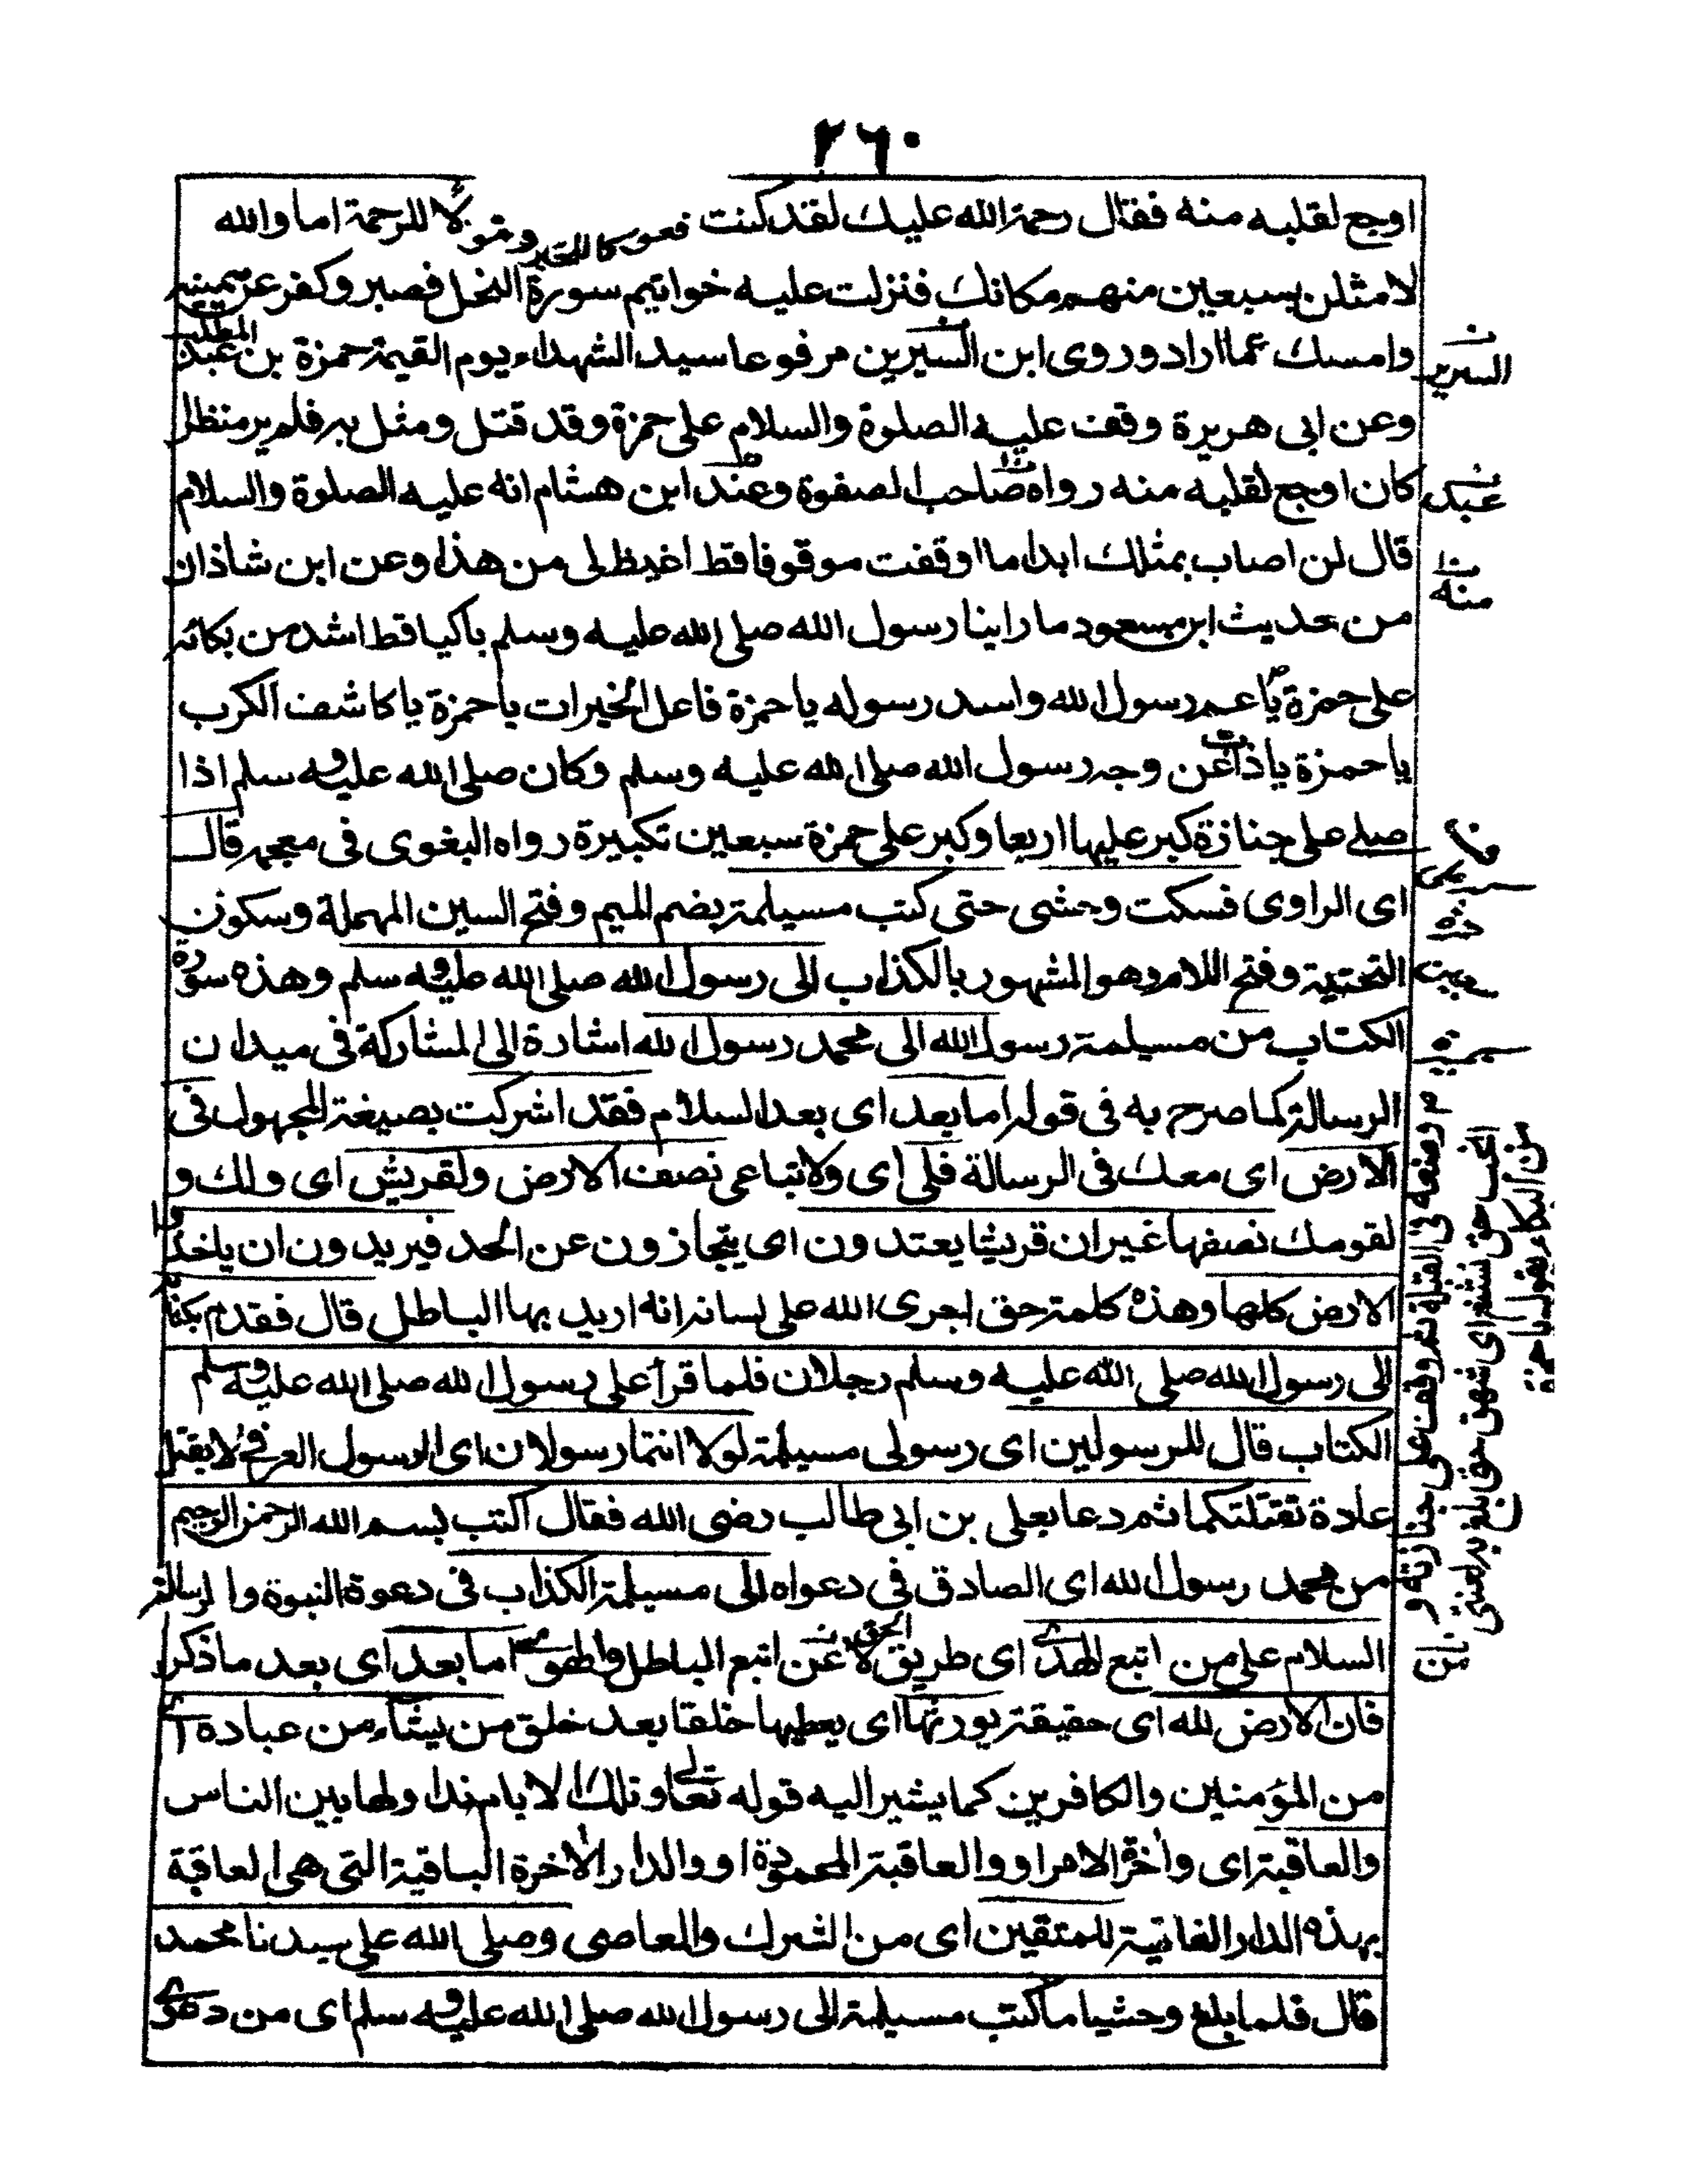 ٢٦٠
اوجع لقلبه منه فقال رحمة الله عليك لقد كنت فعولا للخير وصولا للرحمة اما والله
لامثلن بسبعين منهم مكانك فنزلت عليه خواتيم سورة النحل فصبر وكفر عن يمينه
وامسك عما اراد وروى ابن السيرين مرفوعا سيد الشهداء يوم القيمة حمزة بن عبد المطلب
وعن ابى هريرة وقف عليه الصلوة والسلام على حمزة وقد قتل ومثل به فلم ير منظرا
كان اوجع لقلبه منه رواه صاحب الصفوة وعند ابن هشام انه عليه الصلوة والسلام
قال لن اصاب بمثلك ابدا ما اوقفت موقوفا قط اغيظ لى من هذا وعن ابن شاذان
من حديث ابن مسعود ما راينا رسول الله صلى الله عليه وسلم باكيا قط اشد من بكائه
على حمزة يا عم رسول الله واسد رسوله يا حمزة فاعل الخيرات يا حمزة يا كاشف الكرب
يا حمزة يا ذاب عن وجه رسول الله صلى الله عليه وسلم وكان صلى الله عليه وسلم اذا
صلى على جنازة كبر عليها اربعا وكبر على حمزة سبعين تكبيرة رواه البغوى فى معجمه قال
اى الراوى فسكت وحشى حتى كتب مسيلمة بضم الميم وفتح السين المهملة وسكون
التحتية وفتح اللام وهو المشهور بالكذاب الى رسول الله صلى الله عليه وسلم وهذه سورة
الكتاب من مسيلمة رسول الله الى محمد رسول الله اشارة الى المشاركة فى ميدان
الرسالة كما صرح به فى قوله اما بعد اى بعد السلام فقد اشركت بصيغة المجهول فى
الارض اى معك فى الرسالة فلى اى ولاتباعى نصف الارض ولقريش اى ولك و
لقومك نصفها غير ان قريشا يعتدون اى يتجازون عن الحد فيريدون ان ياخذوا
الارض كلها وهذه كلمة حق اجرى الله على لسانه انه اريد بها الباطل قال فقدم بكتابه
الى رسول الله صلى الله عليه وسلم رجلان فلما قرأ على رسول الله صلى الله عليه وسلم
الكتاب قال للرسولين اى رسولى مسيلمة لولا انتما رسولان اى الرسول العرفى لا يقتل
عادة تقتلتكما ثم دعا بعلى بن ابى طالب رضى الله فقال اكتب بسم الله الرحمن الرحيم
من محمد رسول الله اى الصادق فى دعواه الى مسيلمة الكذاب فى دعوة النبوة والرسالة
السلام على من اتبع الهدى اى طريق الحق لا عن اتبع الباطل والهوى اما بعد اى بعد ما ذكر
فان الارض لله اى حقيقة يورثها اى يعطيها خلقا بعد خلق من يشاء من عباده اى
من المؤمنين والكافرين كما يشير اليه قوله تعالى وتلك الايام نداولها بين الناس
والعاقبة اى وأخرة الامر او والعاقبة المحمودة او والدار الأخرة الباقية التى هى العاقبة
بهذه الدار الفانية للمتقين اى من الشرك والمعاصى وصلى الله على سيدنا محمد
قال فلما بلغ وحشيا ما كتب مسيلمة الى رسول الله صلى الله عليه وسلم اى من دعوى
السرير
عبد
منه
م وضعه فى القبلة ثم وقف على جنازته و
انتحب حتى نشغ اى شهق حتى بلغ به الغشى
من البكاء يقول يا حمزة
من